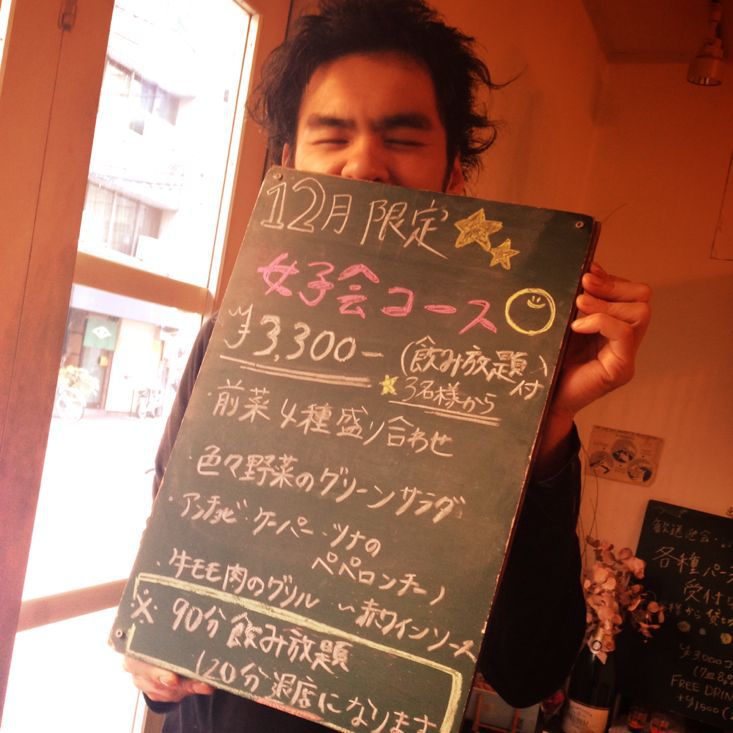 12月限定
女子会コース
¥3,300-
(飲み放題)付
3名様から
・前菜4種盛り合わせ
・色々野菜のグリーンサラダ
・アンチョビ・ケーパー・ツナの
ペペロンチーノ
・牛モモ肉のグリル 〜赤ワインソース
※ 90分飲み放題
120分退店になります
歓送迎会
各種パー
受付
様から貸
¥3000
FREE DRIN
+¥1500